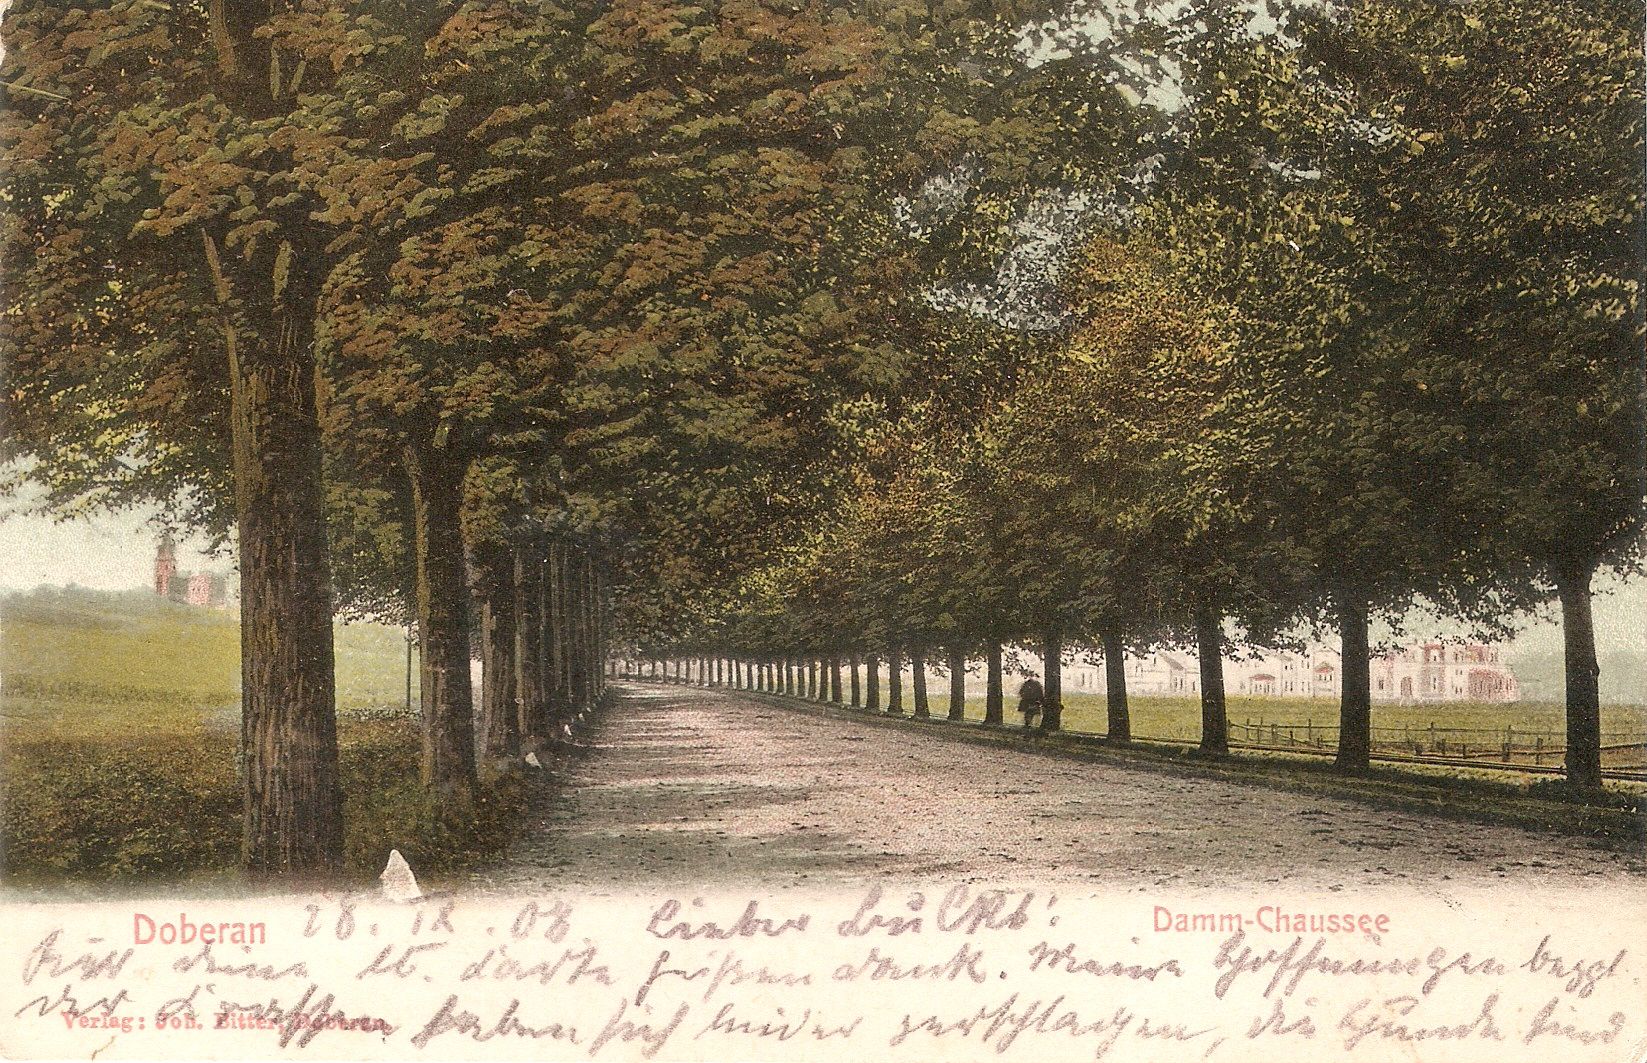 Doberan 28. 12. 08 Lieber Damm-Chaussee
Für deine lb. Karte süßen Dank. Meine Hoffnungen bezgl.
der haben sich leider zerschlagen, die Hunde sind
Verlag: Joh. Bitter, Doberan.